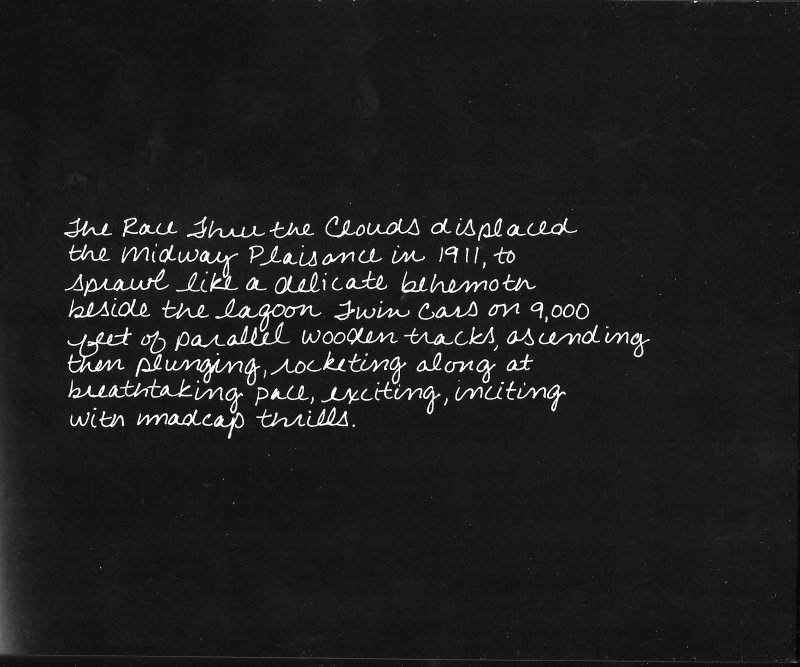 The Race Thru the Clouds displaced
the Midway Plaisance in 1911, to
sprawl like a delicate behemoth
beside the lagoon. Twin cars on 9,000
feet of parallel wooden tracks, ascending
then plunging, rocketing along at
breathtaking pace, exciting, inciting
with madcap thrills.